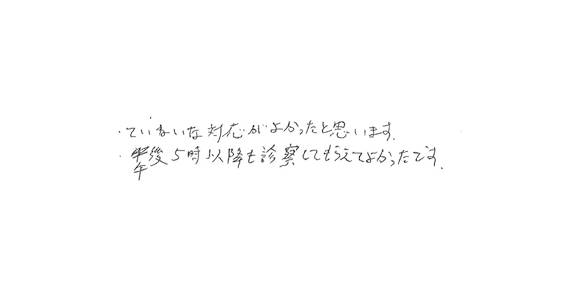 ・ていねいな対応がよかったと思います.
・午後5時以降も診察してもらえてよかったです.